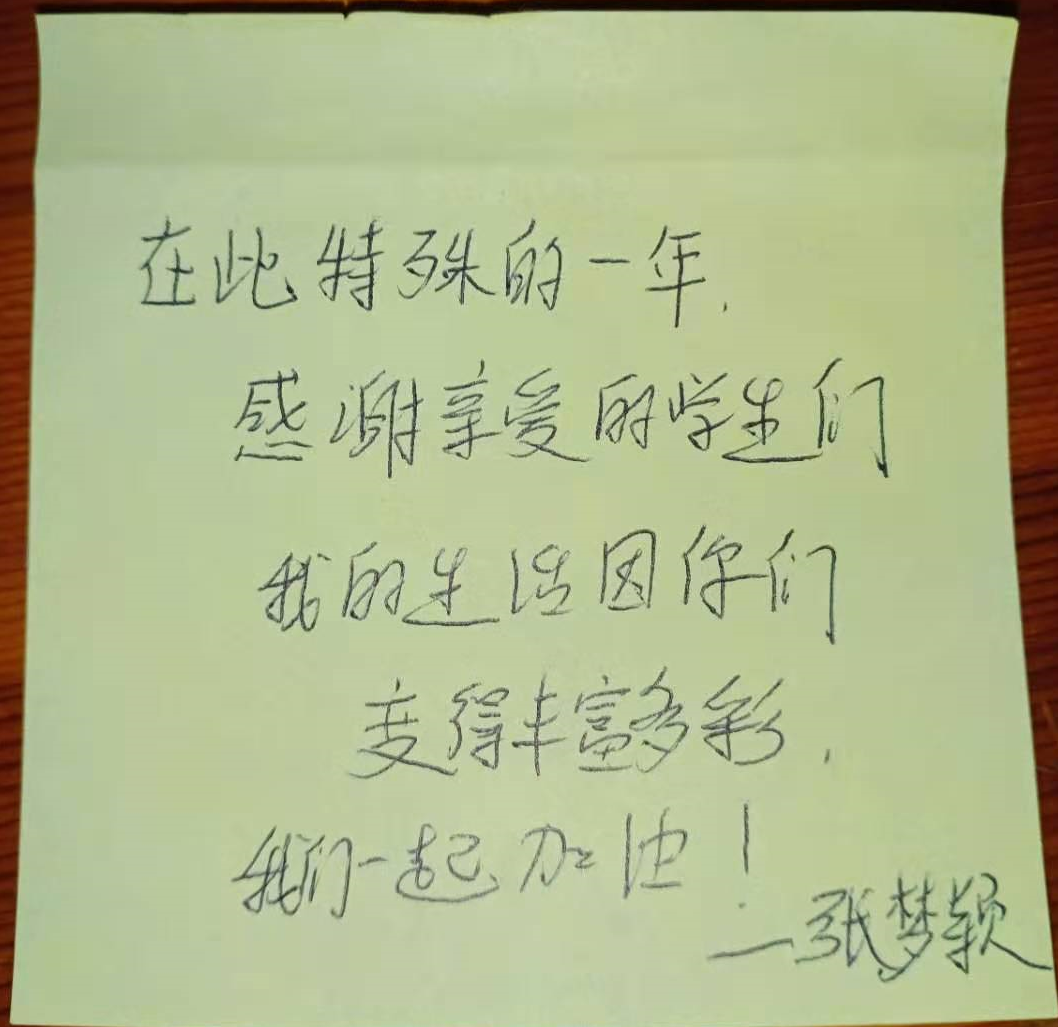 在此特殊的一年,
感谢亲爱的学生们
我的生活因你们
变得丰富多彩,
我们一起加油!
—张梦颖